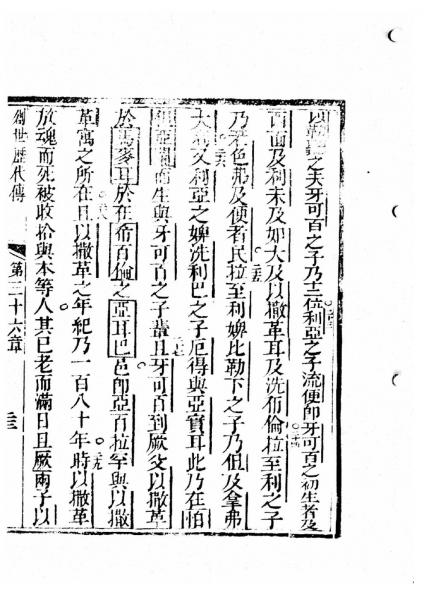 之夫牙可百之子乃十二位利亞之子流便即牙可百之初生者及
西面及利未及如大及以撒革耳及洗布倫拉至利之子
乃若色弗及便者民拉至利婢比勒下之子乃但及拿弗
大利又利亞之婢洗利巴之子厄得與亞實耳此乃在怕
亞蘭而生與牙可百之子輩且牙可百到厥父以撒革
於馬麥耳於在希百倫之亞耳巴邑即亞百拉罕與以撒
革寓之所在且以撒革之年紀乃一百八十年時以撒革
放魂而死被收拾與本等人其已老而滿日且厥兩子以
創世歷代傳 第三十六章